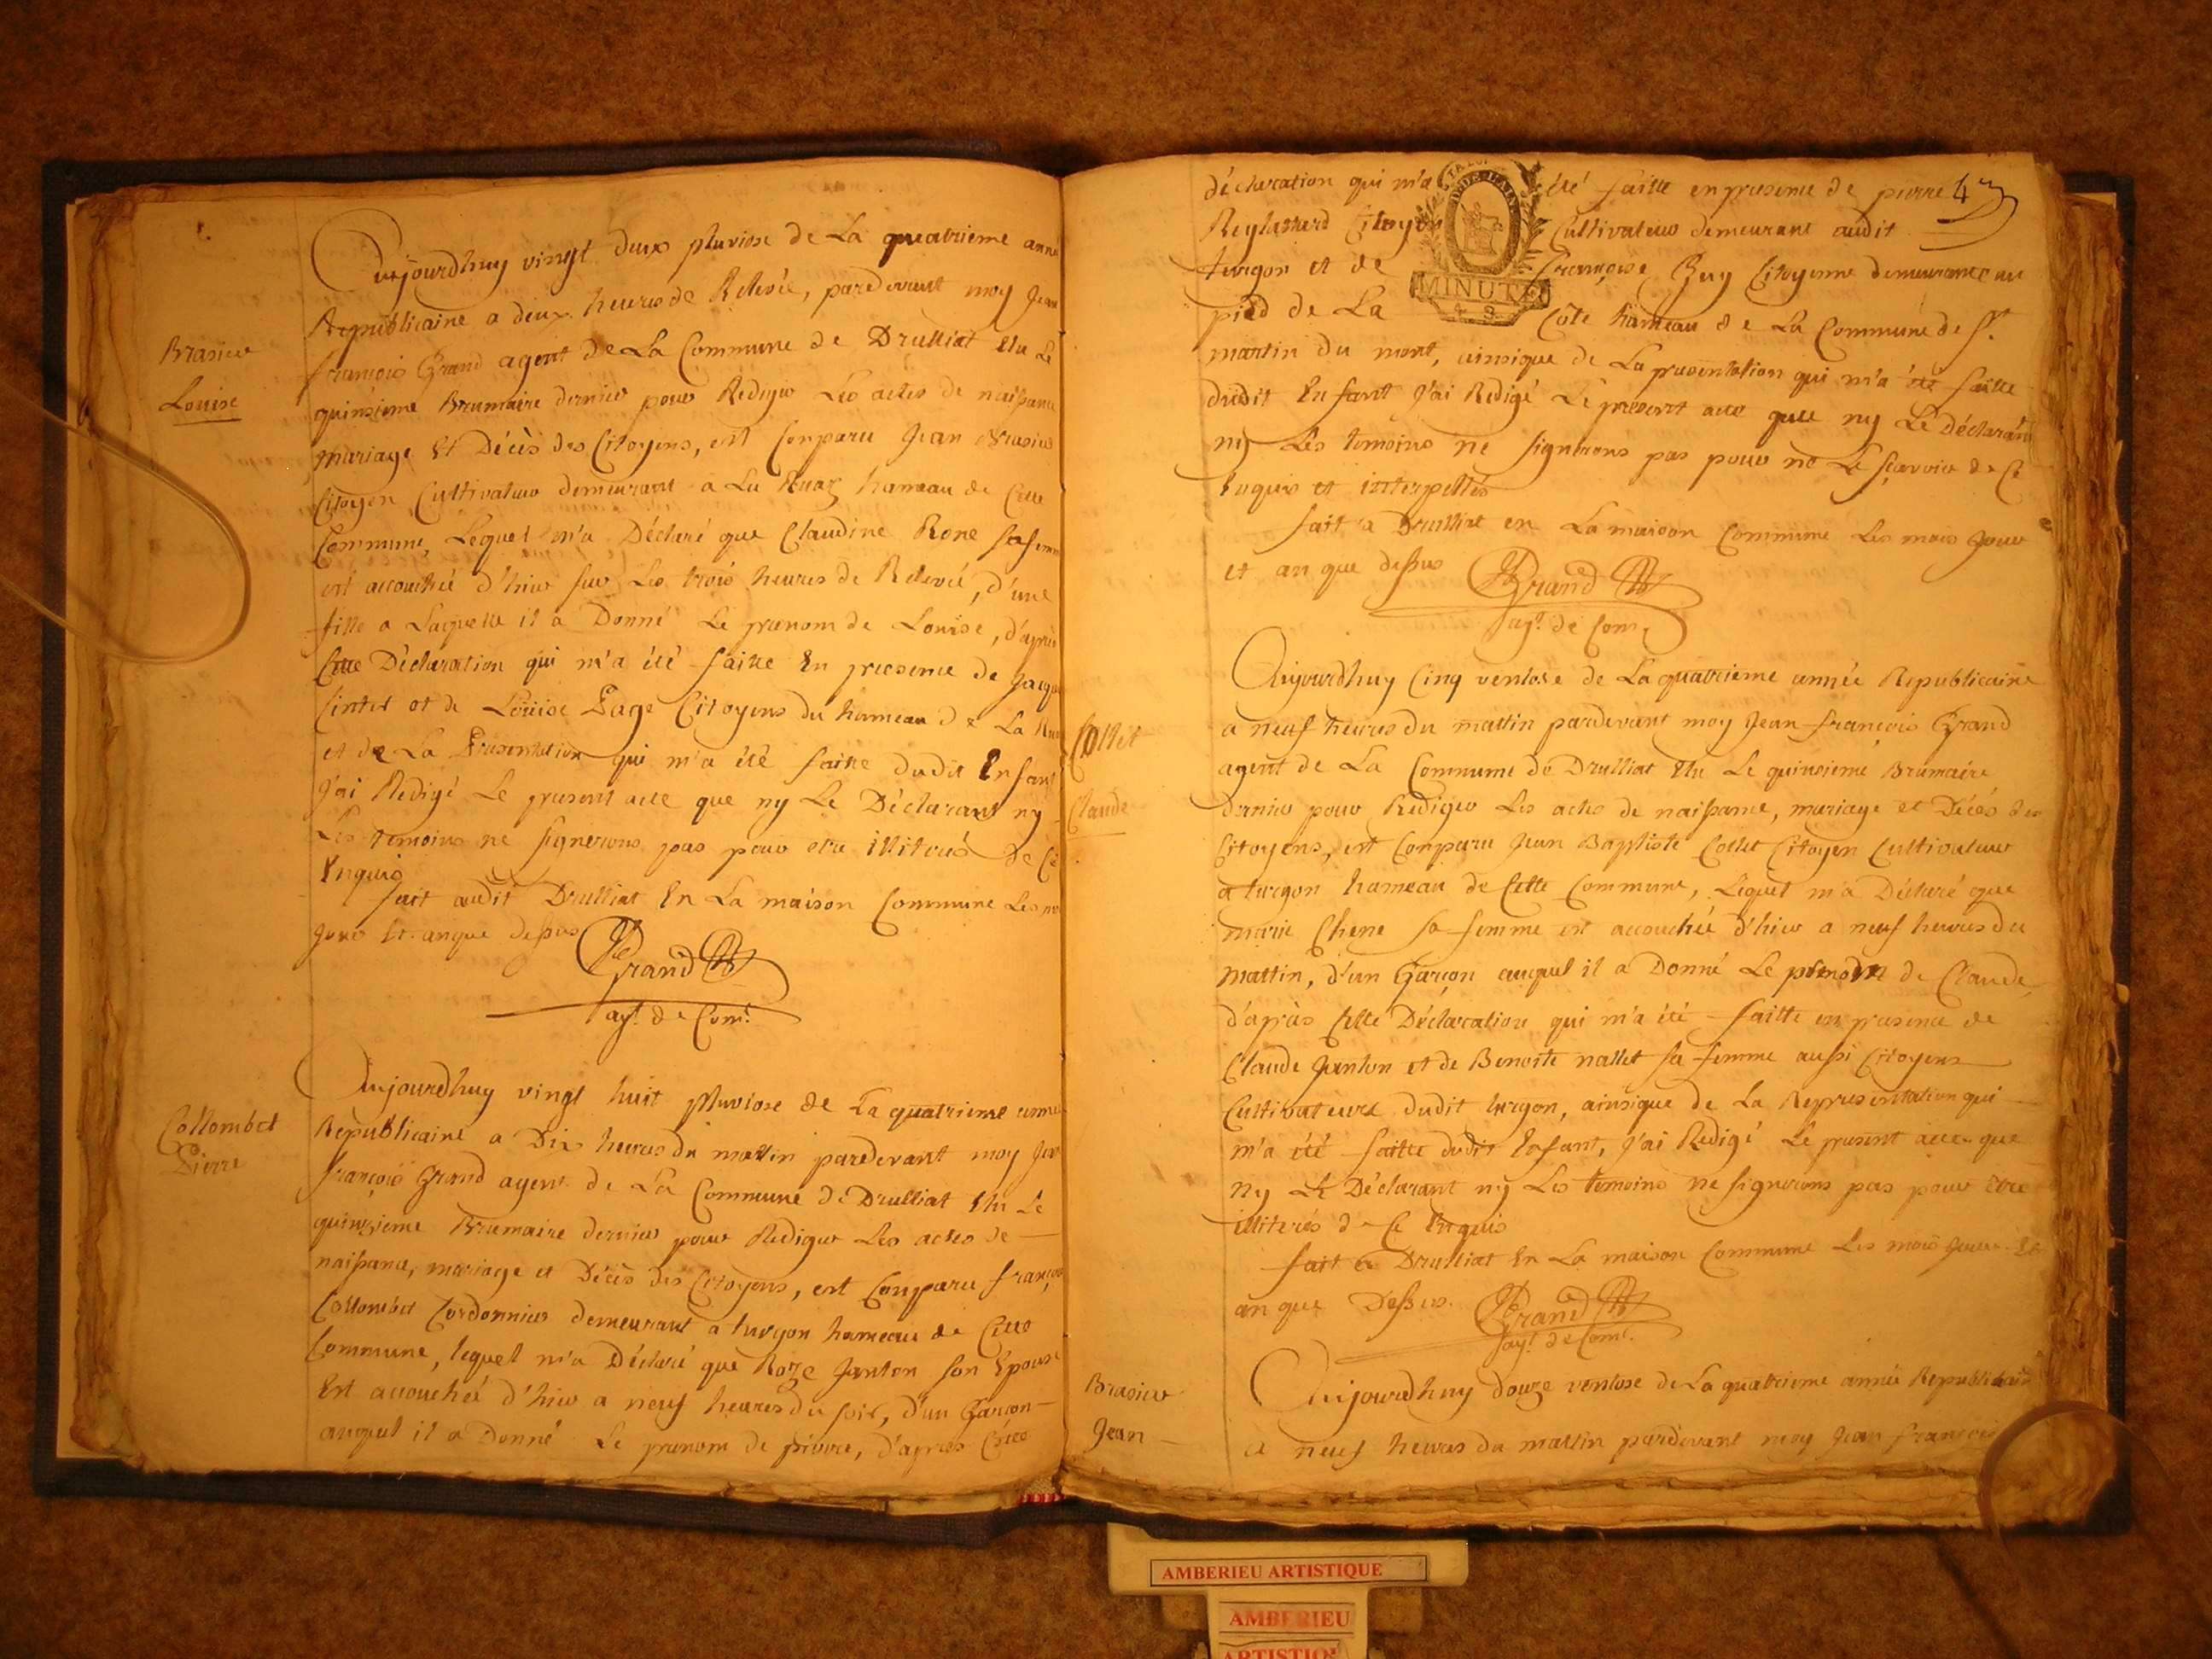 Brasier
Louise
Aujourdhuy vingt deux pluviose de La quatrieme anné
Republicaine a deux heures de Relevée, pardevant moy Jean
françois Grand agent de La Commune de Drulliat Elu Le
quinsieme Brumaire dernier pour Rediger Les actes de naissance
mariage Et Décès des Citoyens, est Conparu Jean Brasier
Citoyen Cultivateur demeurant a La Ruaz hameau de Cette
Commune, Lequel m'a Déclaré que Claudine Rone sa femme
est accouchée d'hier sur Les trois heures de Relevée, d'une
fille a Laquelle il a Donné Le prenom de Louise, d'après
Cette Déclaration qui m'a été faitte En presence de Jacque
et de Louise Page Citoyens du hameau de La
et de La Presentation qui m'a été faitte dudit Enfant
J'ai Redigé Le present acte que ny Le Déclarant ny
Les temoins ne signerons pas pour etre illiterés de Ce
Enquis
fait audit Drulliat En La maison Commune Les
Jour Et anque dessus
Grand
agt. de Com.
Collombet
Pierre
Aujourdhuy vingt huit pluviose de La quatrieme anné
Republicaine a Dix heures du mattin pardevant moy
françois Grand agent de La Commune de Drulliat Elu Le
quinsieme Brumaire dernier pour Rediger Les actes de
naissance, mariage et Décès des Citoyens, est Conparu françois
Collombet Cordonnier demeurant a turgon hameau de Cette
Commune, lequel m'a Déclaré que Roze Janton son Epouse
Est accouchée d'hier a neuf heures du soir, d'un Garçon
auquel il a Donné Le prenom de pierre, d'après Cette
déclaration qui m'a été faitte en presence de pierre 4
Citoyen Cultivateur demeurant audit
turgon et de Françoise Buy Citoyenne demeurante au
pied de La Côte hameau de La Commune de St.
martin du mont, ainsique de La presentation qui m'a été faitte
dudit Enfant J'ai Redigé Le present acte que ny Le Déclarant
ny Les temoins ne signerons pas pour ne Le sçavoir de Ce
Enquis et interpellés
fait a Drulliat en La maison Commune Les mois Jour
et an que dessus Grand
agt. de Com.
MINUTE
Collet
Claude
Aujourdhuy Cinq ventose de La quatrieme année Republicaine
a neuf heures du mattin pardevant moy Jean françois Grand
agent de La Commune de Drulliat Elu Le quinsieme Brumaire
dernier pour Rediger Les actes de naissance, mariage et Décès des
Citoyens, est Conparu Jean Baptiste Collet Citoyen Cultivateur
a turgon hameau de Cette Commune, Lequel m'a Déclaré que
marie Chene sa femme est accouchée d'hier a neuf heures du
mattin, d'un Garçon auquel il a Donné Le prenom de Claude,
d'après Cette Déclaration qui m'a été faitte en presence de
Claude Janton et de Benoite nallet sa femme aussi Citoyens
Cultivateurs dudit turgon, ainsique de La Representation qui
m'a été faitte dudit Enfant, J'ai Redigé Le present acte que
ny Le Déclarant ny Les temoins ne signerons pas pour Etre
illiterés de Ce Enquis
fait a Drulliat En La maison Commune Les mois Jour Et
an que Dessus. Grand
agt. de Com.
Brasier
Jean
Aujourdhuy douze ventose de La quatrieme année Republicaine
a neuf heures du mattin pardevant moy Jean françois
AMBERIEU ARTISTIQUE
AMBERIEU
ARTISTIQ